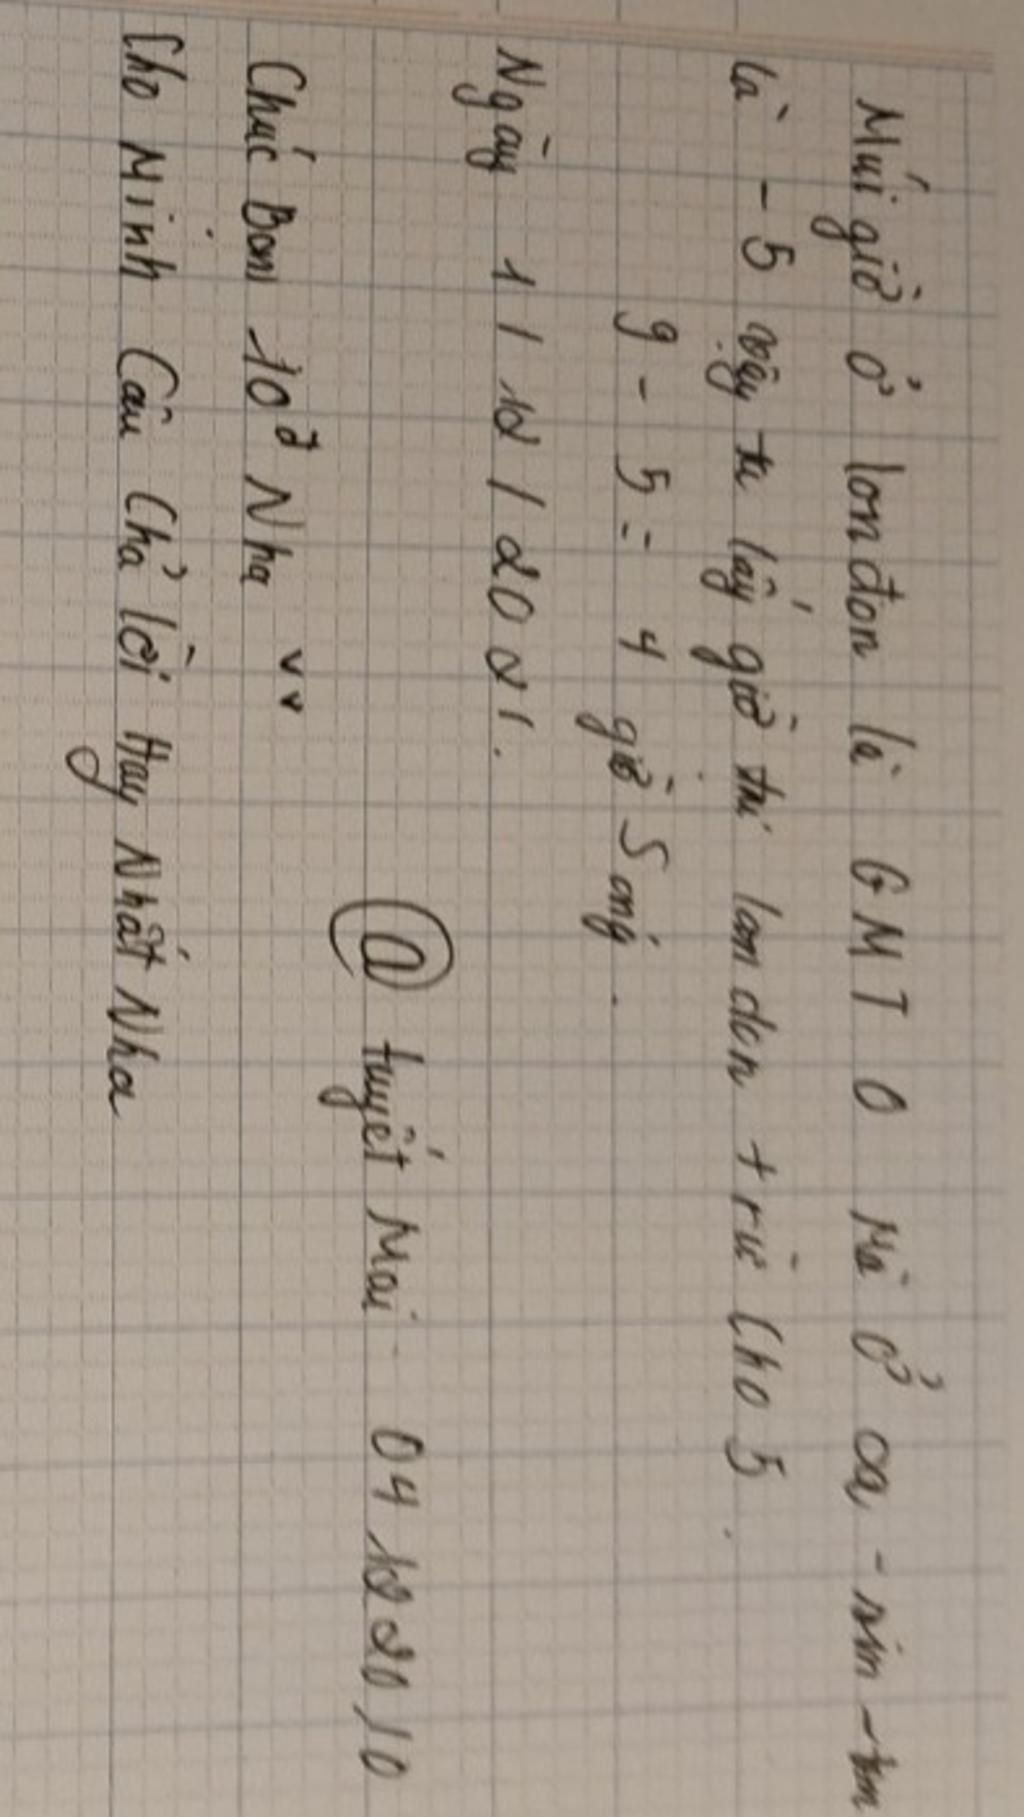 Múi giờ ở lonđon là GMT 0 Mà ở oa - sin - tơn
là - 5 vậy ta lấy giờ thi lon don trừ Cho 5.
9 - 5 = 4 giờ Sáng.
Ngày 1 / 12 / 2021.
@ tuyết Mai - 04 12 20 10
Chúc Bạn 10đ Nha vv
Cho Mình Câu Chả lời Hay Nhất Nha